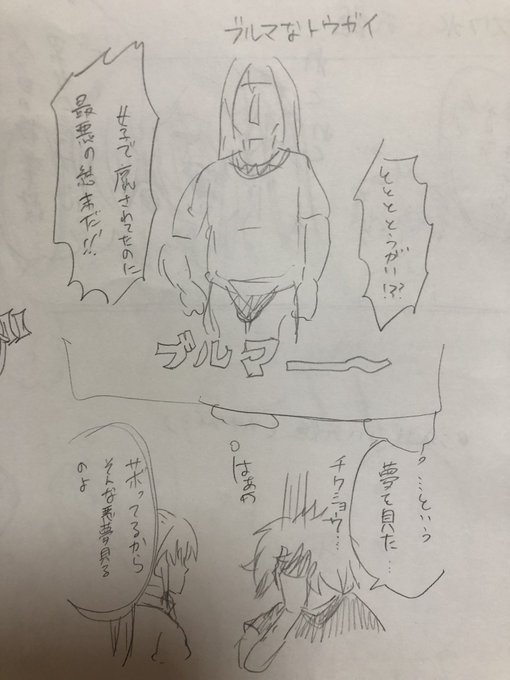 ブルマなトウガイ
とととととうがい!??
女子で
されてたのに
最悪の結末だ!!
ブルマ
…という
夢を見た…
チクショウ…
はあ
サボってるから
そんな悪夢見る
のよ